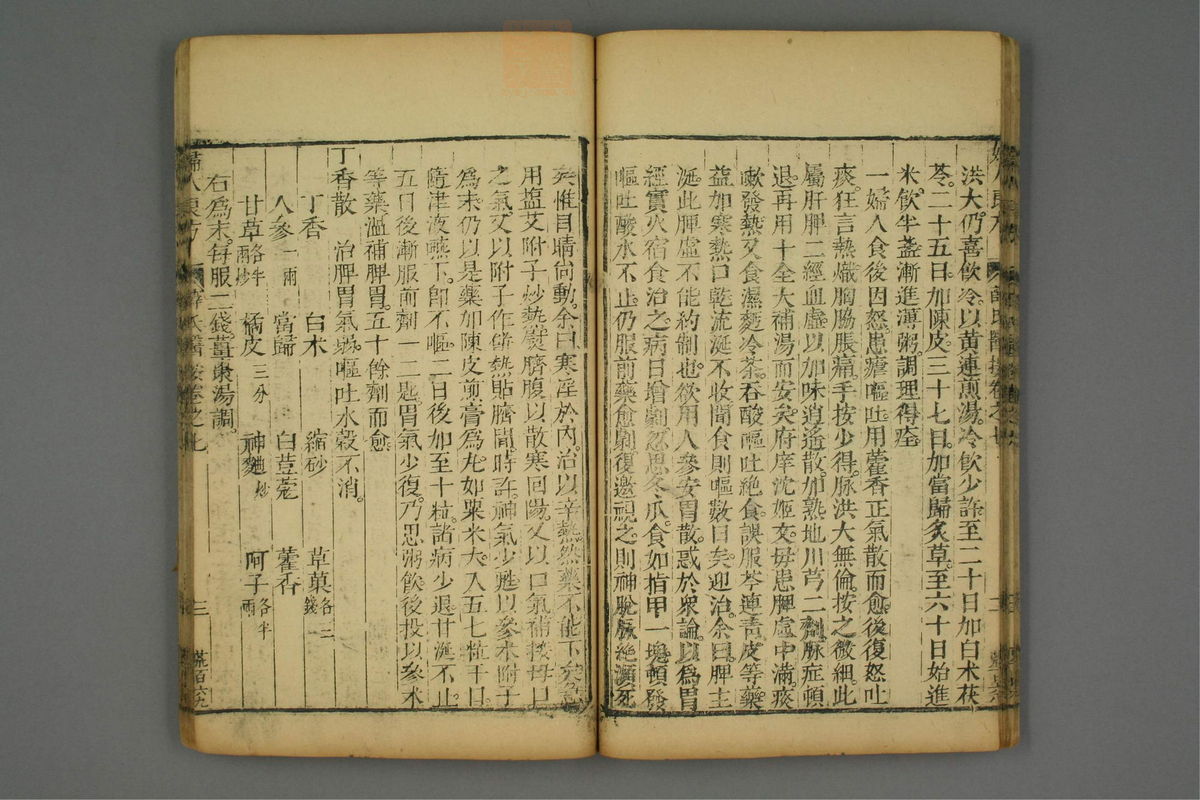 洪大仍喜飲冷以黃連煎湯冷飲少許至二十日加白朮茯
苓二十五日加陳皮三十七日加當歸炙草至六十日始進
米飲半盞漸進薄粥調理得痊
一婦人食後因怒患瘧嘔吐用藿香正氣散而愈後復怒吐
痰狂言熱熾胸脇脹痛手按少得脉洪大無倫按之微細此
屬肝脾二經血虛以加味逍遙散加熟地川芎二劑脉症頓
退再用十全大補湯而安矣府庠沈姬文母患脾虛中滿痰
嗽發熱又食濕麪冷茶吞酸嘔吐絕食誤服芩連青皮等藥
益加寒熱口乾流涎不收聞食則嘔數日矣迎治余曰脾主
涎此脾虛不能約制也欲用人參安胃散惑於衆論以爲胃
經實火宿食治之病日增劇忽思冬瓜食如指甲一塊頓發
嘔吐酸水不止仍服前藥愈劇復邀視之則神脫脉絕瀕死
矣惟目睛尙動余曰寒淫於內治以辛熱然藥不能下矣急
用盐艾附子炒熱熨臍腹以散寒回陽又以口氣補接母口
之氣又以附子作餅熱貼臍間時許神氣少甦以參朮附子
爲末仍以是藥加陳皮煎膏爲丸如粟米大入五七粒于口
隨津液嚥下即不嘔二日後加至十粒諸病少退甘涎不止
五日後漸服前劑一二匙胃氣少復乃思粥飲後投以參朮
等藥溫補脾胃五十餘劑而愈
丁香散 治脾胃氣嘔吐水穀不消
丁香 白朮 縮砂 草菓各二錢
人參一兩 當歸 白荳蔻 藿香
甘草各半兩炒 橘皮三分 神麯炒 阿子各半兩
右爲末每服二錢薑棗湯調
婦人良方 薛氏醫按卷之七 三